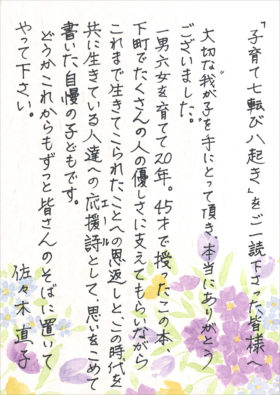 「子育て七転び八起き」をご一読下さった皆様へ
大切な我が子を手にとって頂き、本当にありがとう
ございました。
一男六女を育てて20年。45才で授ったこの本、
下町でたくさんの人の優しさに支えてもらいながら
これまで生きてこられたことへの恩返しと、この時代を
共に生きている人達への応援詩エールとして、思いをこめて
書いた自慢の子どもです。
どうかこれからもずっと皆さんのそばに置いて
やって下さい。
佐々木直子